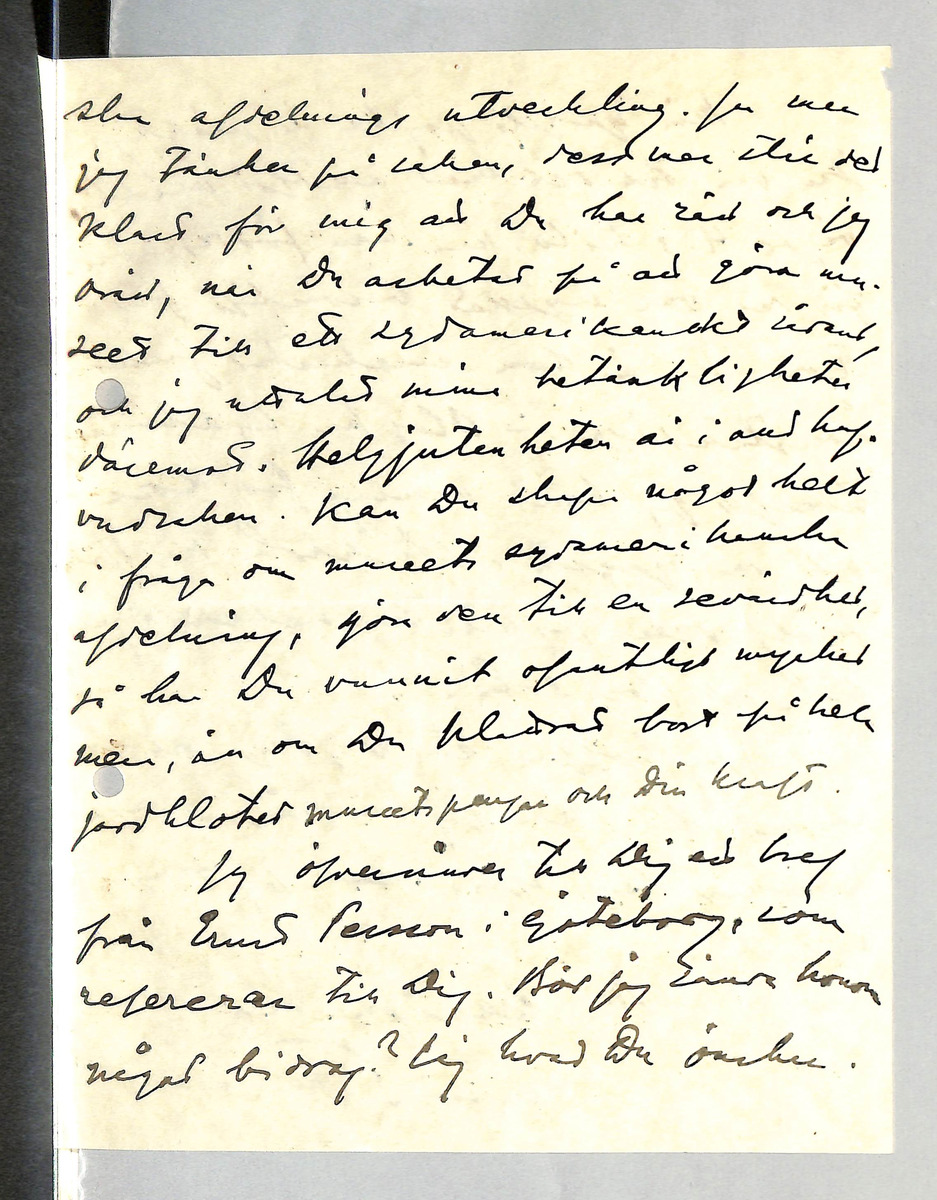 ska afdelnings utveckling. Ju mer
jag tänker på saken, dess mer står det
klart för mig att Du har rätt och jag
orätt, när Du arbetat på att göra mu-
seet till ett sydamerikanskt sådant,
och jag uttalat mina betänkligheter
däremot. Helgjutenheten är i
hufvudsaken. Kan Du skapa något helt
i fråga om museets sydamerikanska
afdelning, göra den till en sevärdhet,
så har Du vunnit ofantligt mycket
mer, än om Du plottrat bort på hela
jordklotet museets pengar och Din kraft.
Jag öfversänder till Dig ett bref
från Ernst Persson i Göteborg, som
refererar till Dig. Bör jag sända honom
något bidrag? Säg hvad Du önskar.